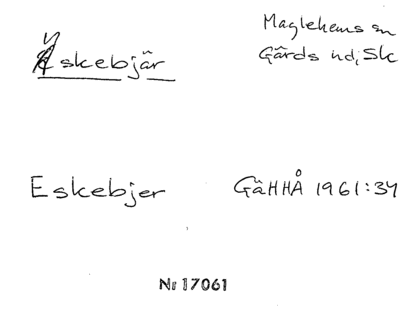 Äskebjär
Maglehems sn
Gärds hd, Sk
Eskebjer
GäHHÅ 1961:34
Nr 17061